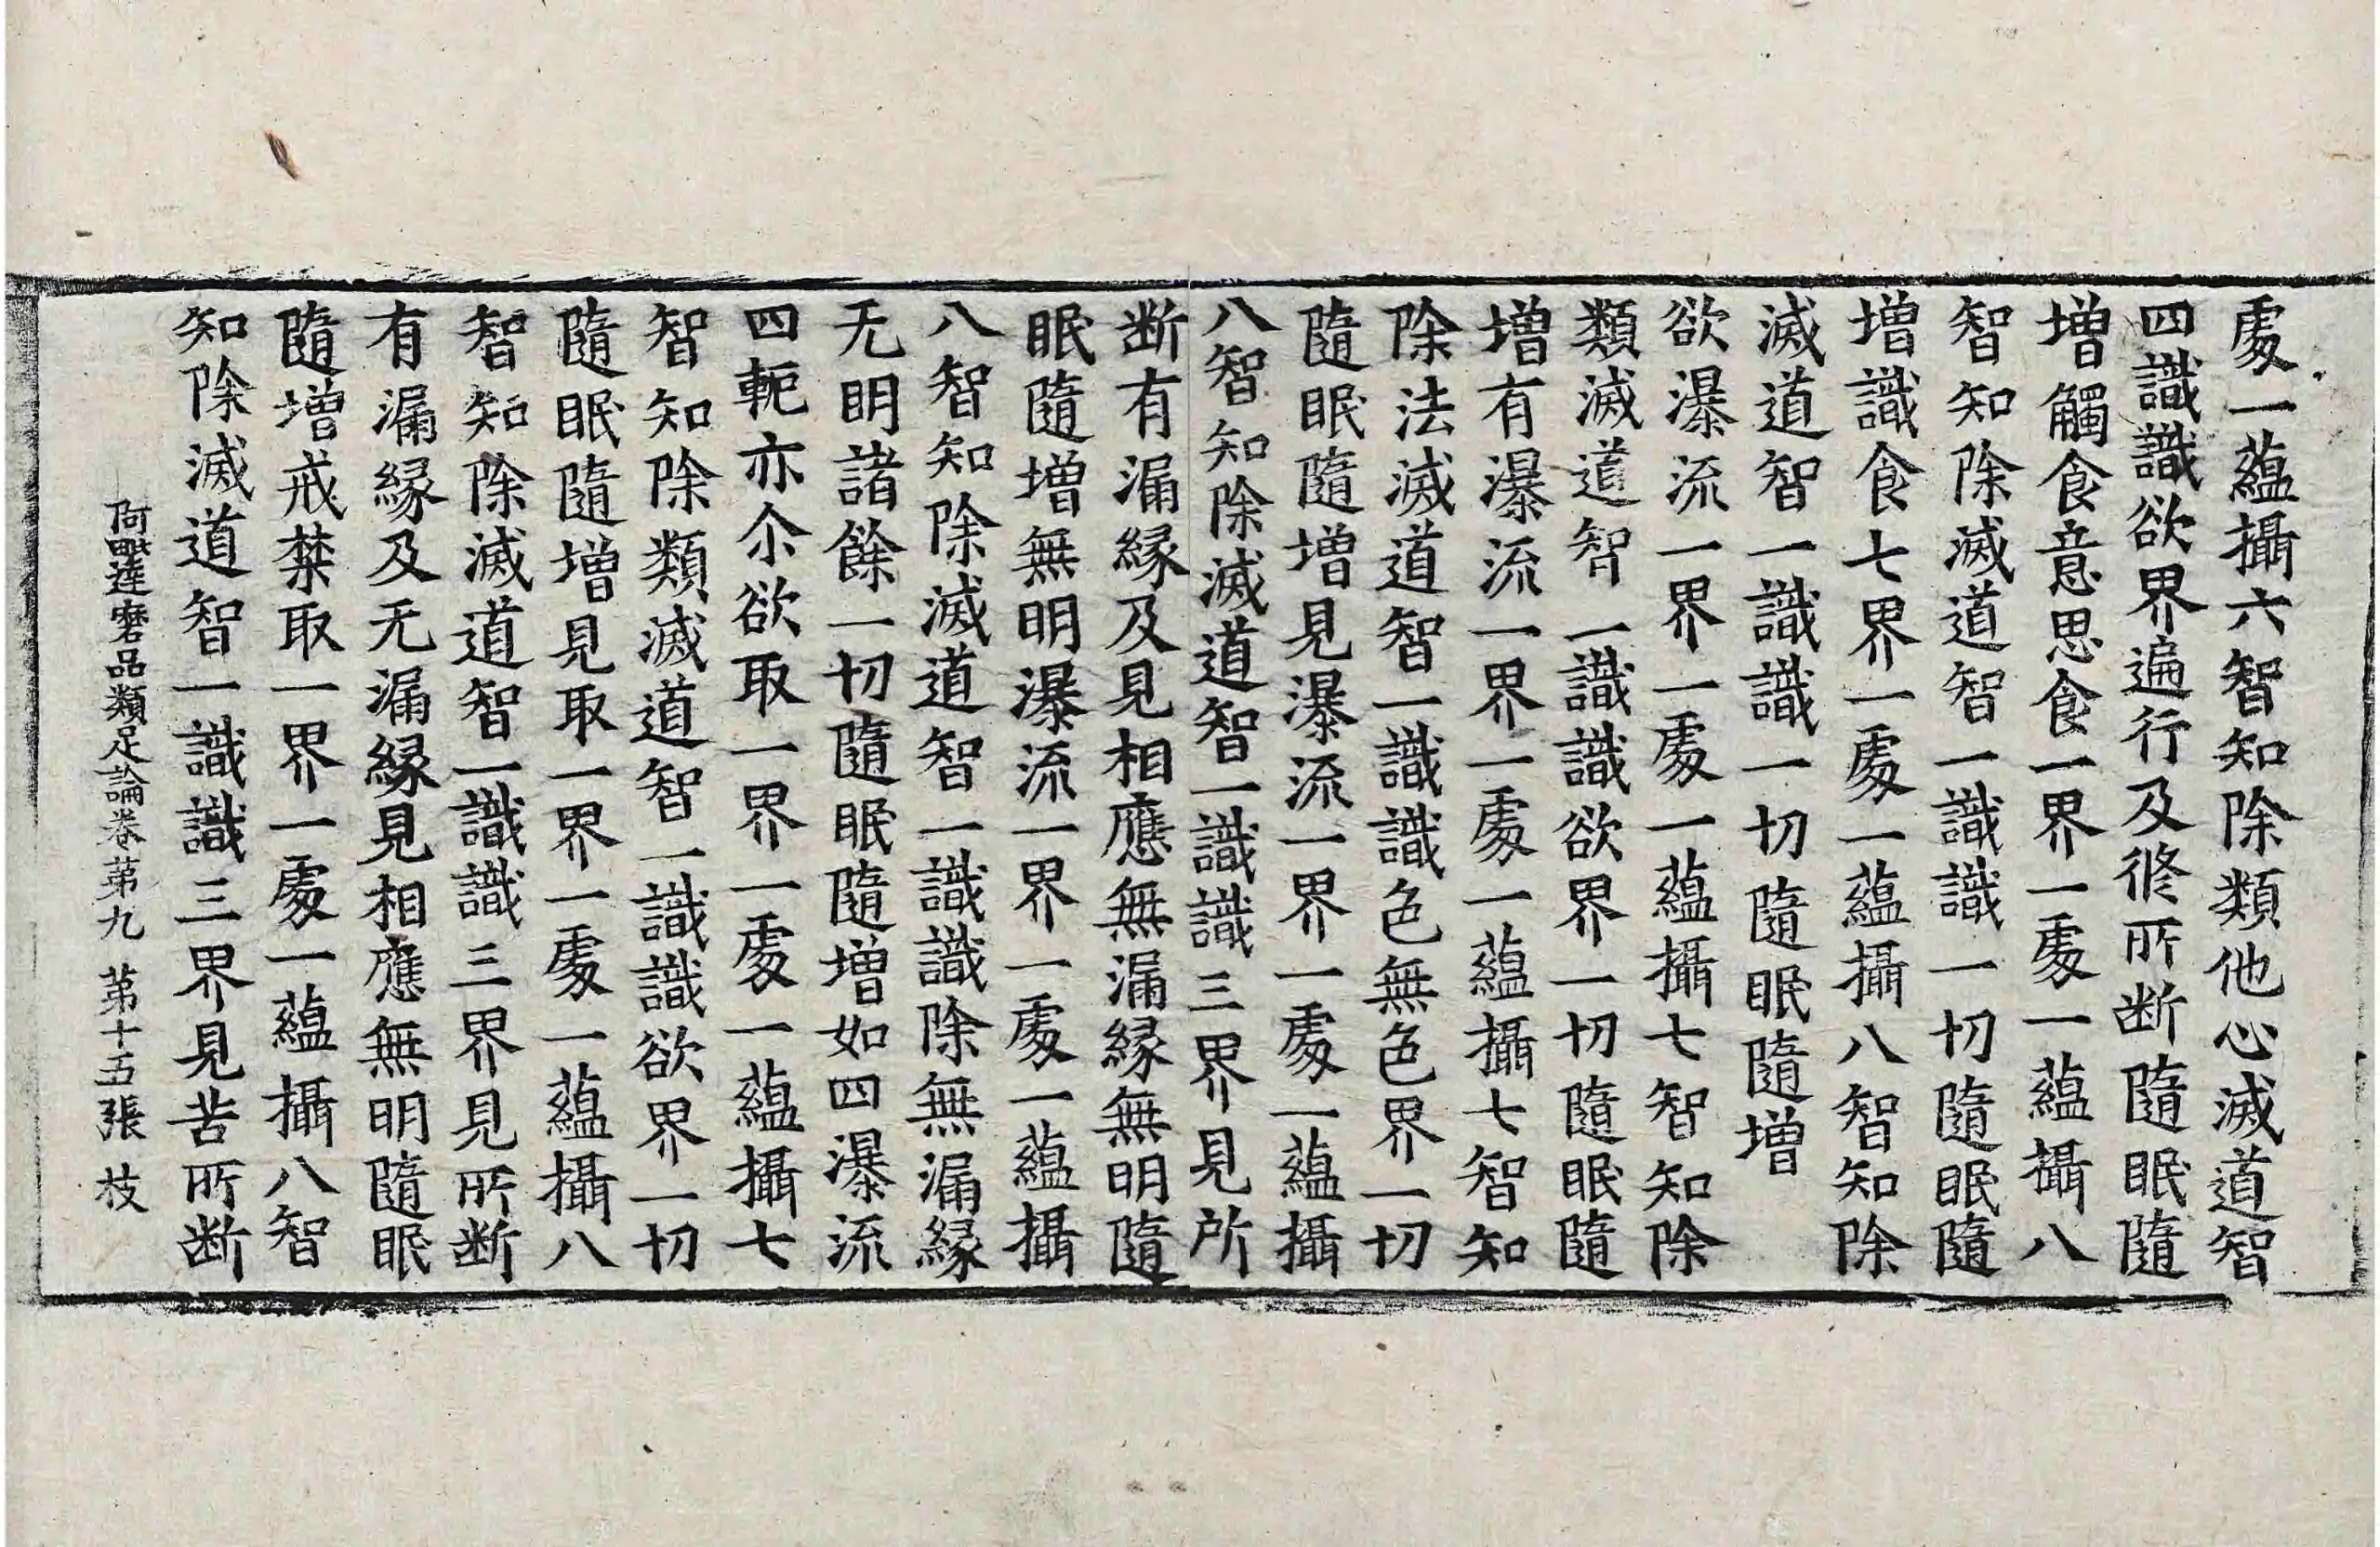 處一蘊攝六智知除類他心滅道智
四識識欲界遍行及修所断隨眠隨
增觸食意思食一界一處一蘊攝八
智知除滅道智一識識一切隨眠隨
增識食七界一處一蘊攝八智知除
滅道智一識識一切隨眠隨增
欲瀑流一界一處一蘊攝七智知除
類滅道智一識識欲界一切隨眠隨
增有瀑流一界一處一蘊攝七智知
除法滅道智一識識色無色界一切
隨眠隨增見瀑流一界一處一蘊攝
八智知除滅道智一識識三界見所
断有漏緣及見相應無漏緣無明隨
眠隨增無明瀑流一界一處一蘊攝
八智知除滅道智一識識除無漏緣
无明諸餘一切隨眠隨增如四瀑流
四軛亦尒欲取一界一處一蘊攝七
智知除類滅道智一識識欲界一切
隨眠隨增見取一界一處一蘊攝八
智知除滅道智一識識三界見所断
有漏緣及无漏緣見相應無明隨眠
隨增戒禁取一界一處一蘊攝八智
知除滅道智一識識三界見苦所断
阿毗達磨品類足論卷苐九 苐十五張 枝